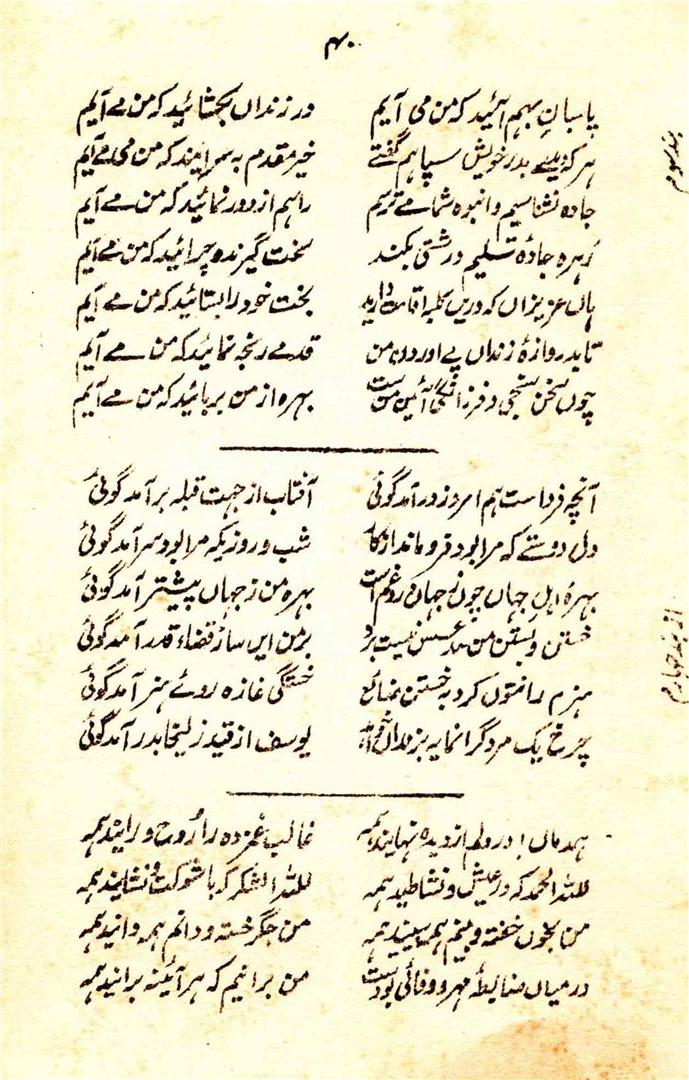 ۴۰
پاسبانِ بہم آئید کہ من می آیم در زنداں بکشائید کہ من مے آیم
ہر کہ دیدے بدر خویش سپاہم گفتے خیر مقدم بہ سرایند کہ من می مے آیم
جادہ نشناسیم و انبوہ شما مے ترسم راہم از دور نمائید کہ من مے آیم
رہرو جادۂ تسلیم درشتی نکند سخت گیرندہ چرائید کہ من مے آیم
ہاں عزیزاں کہ دریں کلبہ اقامت دارید بخت خود را بستائید کہ من مے آیم
تا بدروازۂ زنداں پے آوردن من قدمے رنجہ نمائید کہ من مے آیم
چوں سخن سنجی و فرزانگی آئین من ست بہرہ از من بربائید کہ من مے آیم
بند سوم
آنچہ فرداست ہم امروز در آمد گوئی آفتاب از جہت قبلہ برآمد گوئی
دل دوستے کہ مرا بود فرو ماند از کار شب و روزیکہ مرا بود سر آمد گوئی
بہرۂ اہل جہاں چوں ز جہاں غم است بہرہ من ز جہاں پیشتر آمد گوئی
خستن و بستن من عسس نیست برو بر من ایں ساز قضاء قدر آمد گوئی
ہنرم را نتواں کرد بہ خستن ضائع خستگی غازہ روئے ہنر آمد گوئی
چرخ یک مرد گرانمایہ بزنداں خواہد یوسف از قید زلیخا بدر آمد گوئی
از بند چہارم
ہمدماں! در دلم از دیدہ نہانید ہمہ غالب غمزدہ را روح و رانید ہمہ
للّٰہ الحمد کہ در عیش و نشاطید ہمہ للّٰہ الشکر کہ با شوکت و شانید ہمہ
من بخوں خفتہ و بینم ہمہ بینید ہمہ من جگر خستہ و دانم ہمہ دانید ہمہ
درمیاں ضابطۂ مہر و وفائی بودست من برانیم کہ ہر آئینہ برانید ہمہ